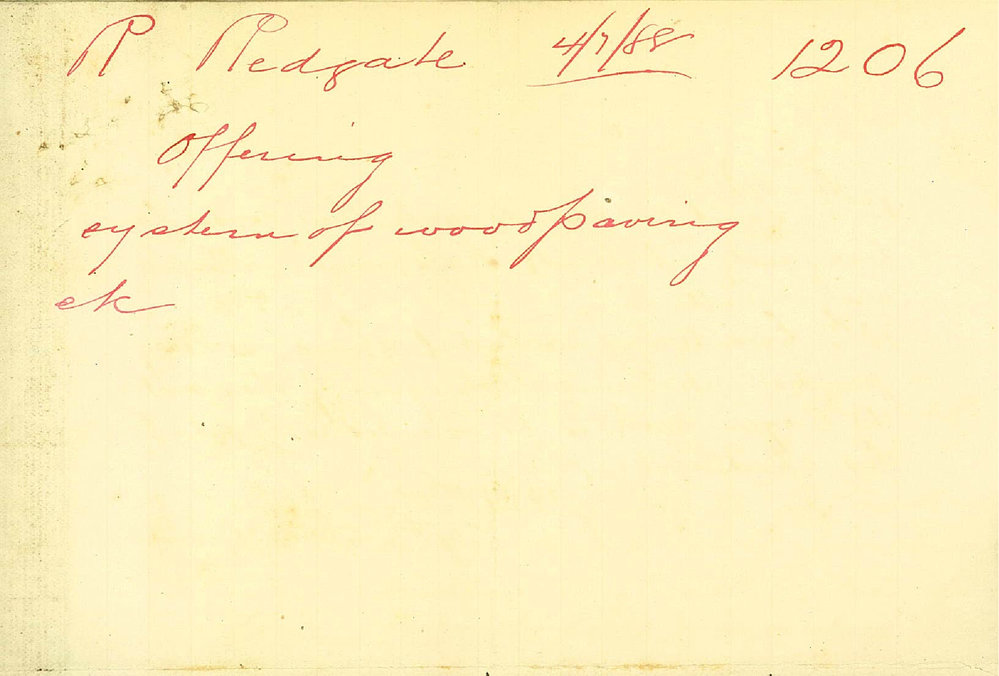 R Redgate 4/7/88 1206
Offering
system of woodpaving
etc